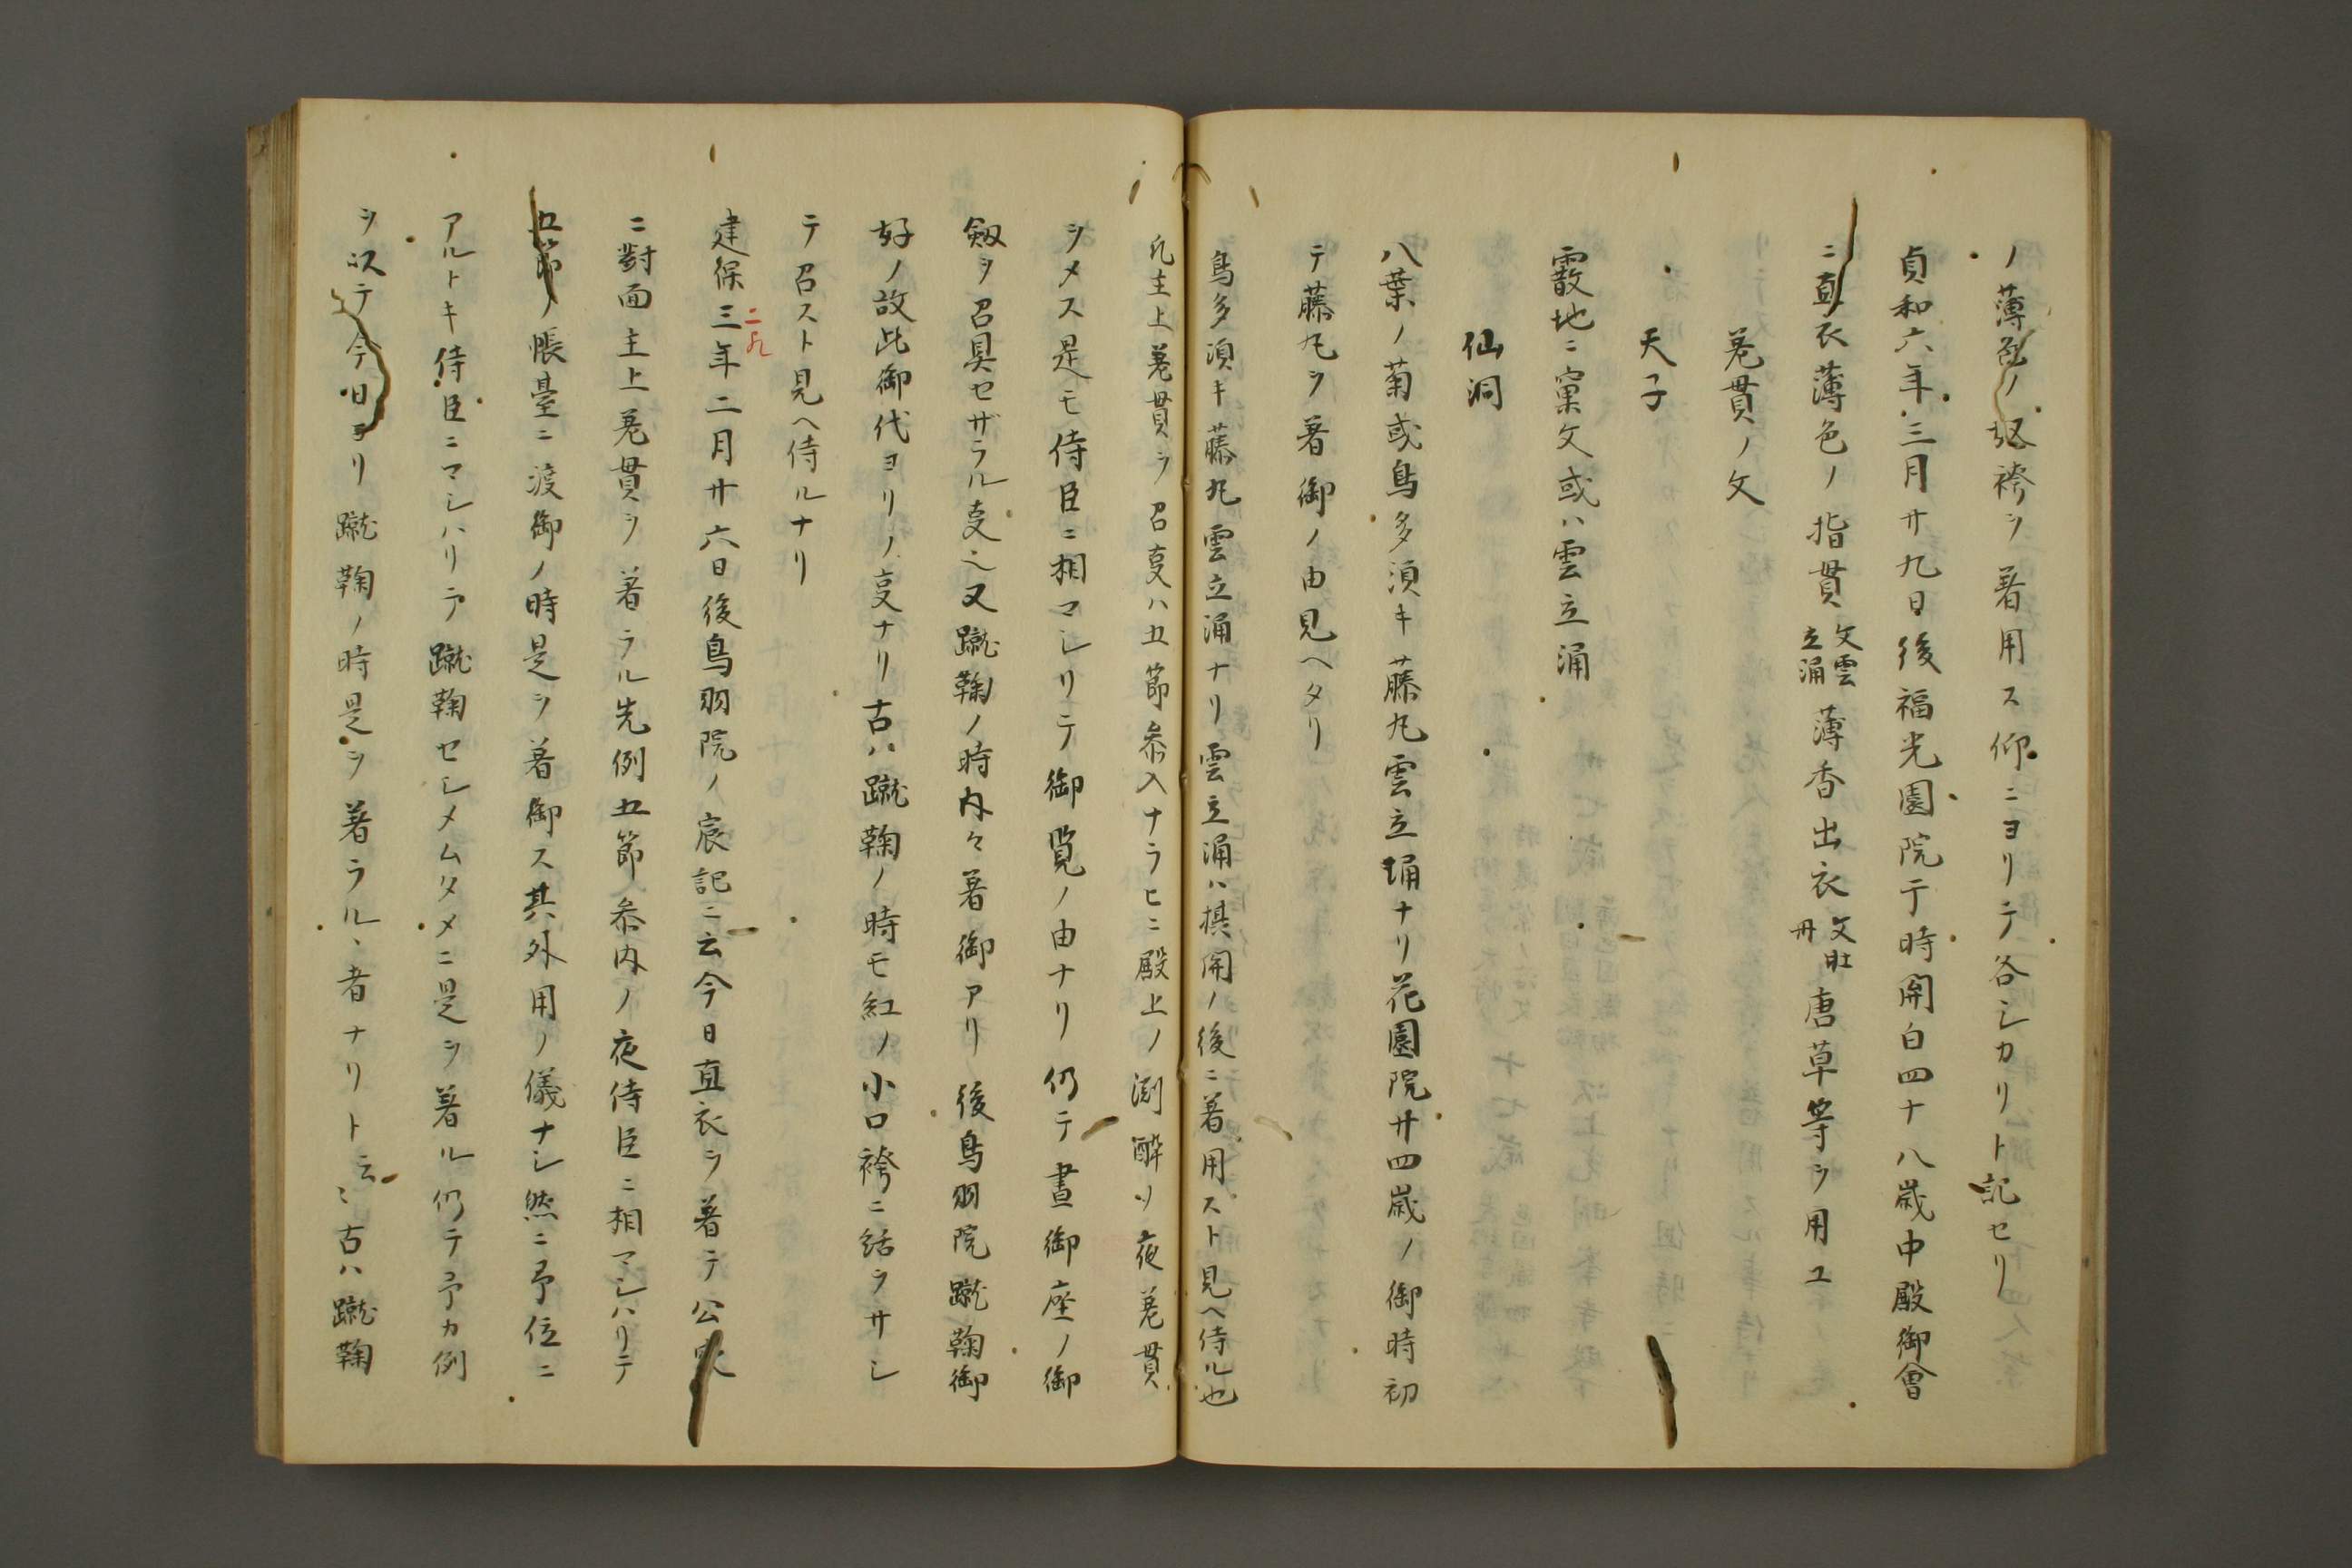 ノ薄色ノ奴袴ヲ著用ス仰ニヨリテ各シカリト記セリ
貞和六年三月廿九日後福光園院于時関白四十八歳中殿御會
ニ直衣薄色ノ指貫文雲立涌薄香出衣文牡丹唐草等ヲ用ユ
差貫ノ文
天子
霰地ニ窠文或ハ雲立涌
仙洞
八葉ノ菊或鳥多湏キ藤丸雲立埇ナリ花園院廿四歳ノ御時初
テ藤丸ヲ著御ノ由見ヘタリ
鳥多湏キ藤丸雲立涌ナリ雲立涌ハ摂関ノ後ニ著用スト見ヘ侍ル也
凡主上差貫ヲ召支ハ五節参入ナラヒニ殿上ノ渕酔ノ夜差貫
シメス是モ侍臣ニ相マシリテ御覧ノ由ナリ仍テ晝御座ノ御
剱ヲ召具セザラル支之又蹴鞠ノ時内々著御アリ後鳥羽院蹴鞠御
好ノ故此御代ヨリノ支ナリ古ハ蹴鞠ノ時モ紅ノ小口袴ニ結ヲサシ
テ召スト見ヘ侍ルナリ
建保三年二月廿六日後鳥羽院ノ宸記ニ云今日直衣ヲ著テ公
ニ對面主上差貫ヲ著ラル先例五節参内ノ夜侍臣ニ相マシハリテ
五節ノ帳臺ニ渡御ノ時是ヲ著御ス其外用ノ儀ナシ然ニ予位ニ
アルトキ侍臣ニマシハリテ蹴鞠セシメムタメニ是ヲ著ル仍テ予カ例
ヲ以テ今日ヨリ蹴鞠ノ時是ヲ著ラルヽ者ナリト云〻古ハ蹴鞠